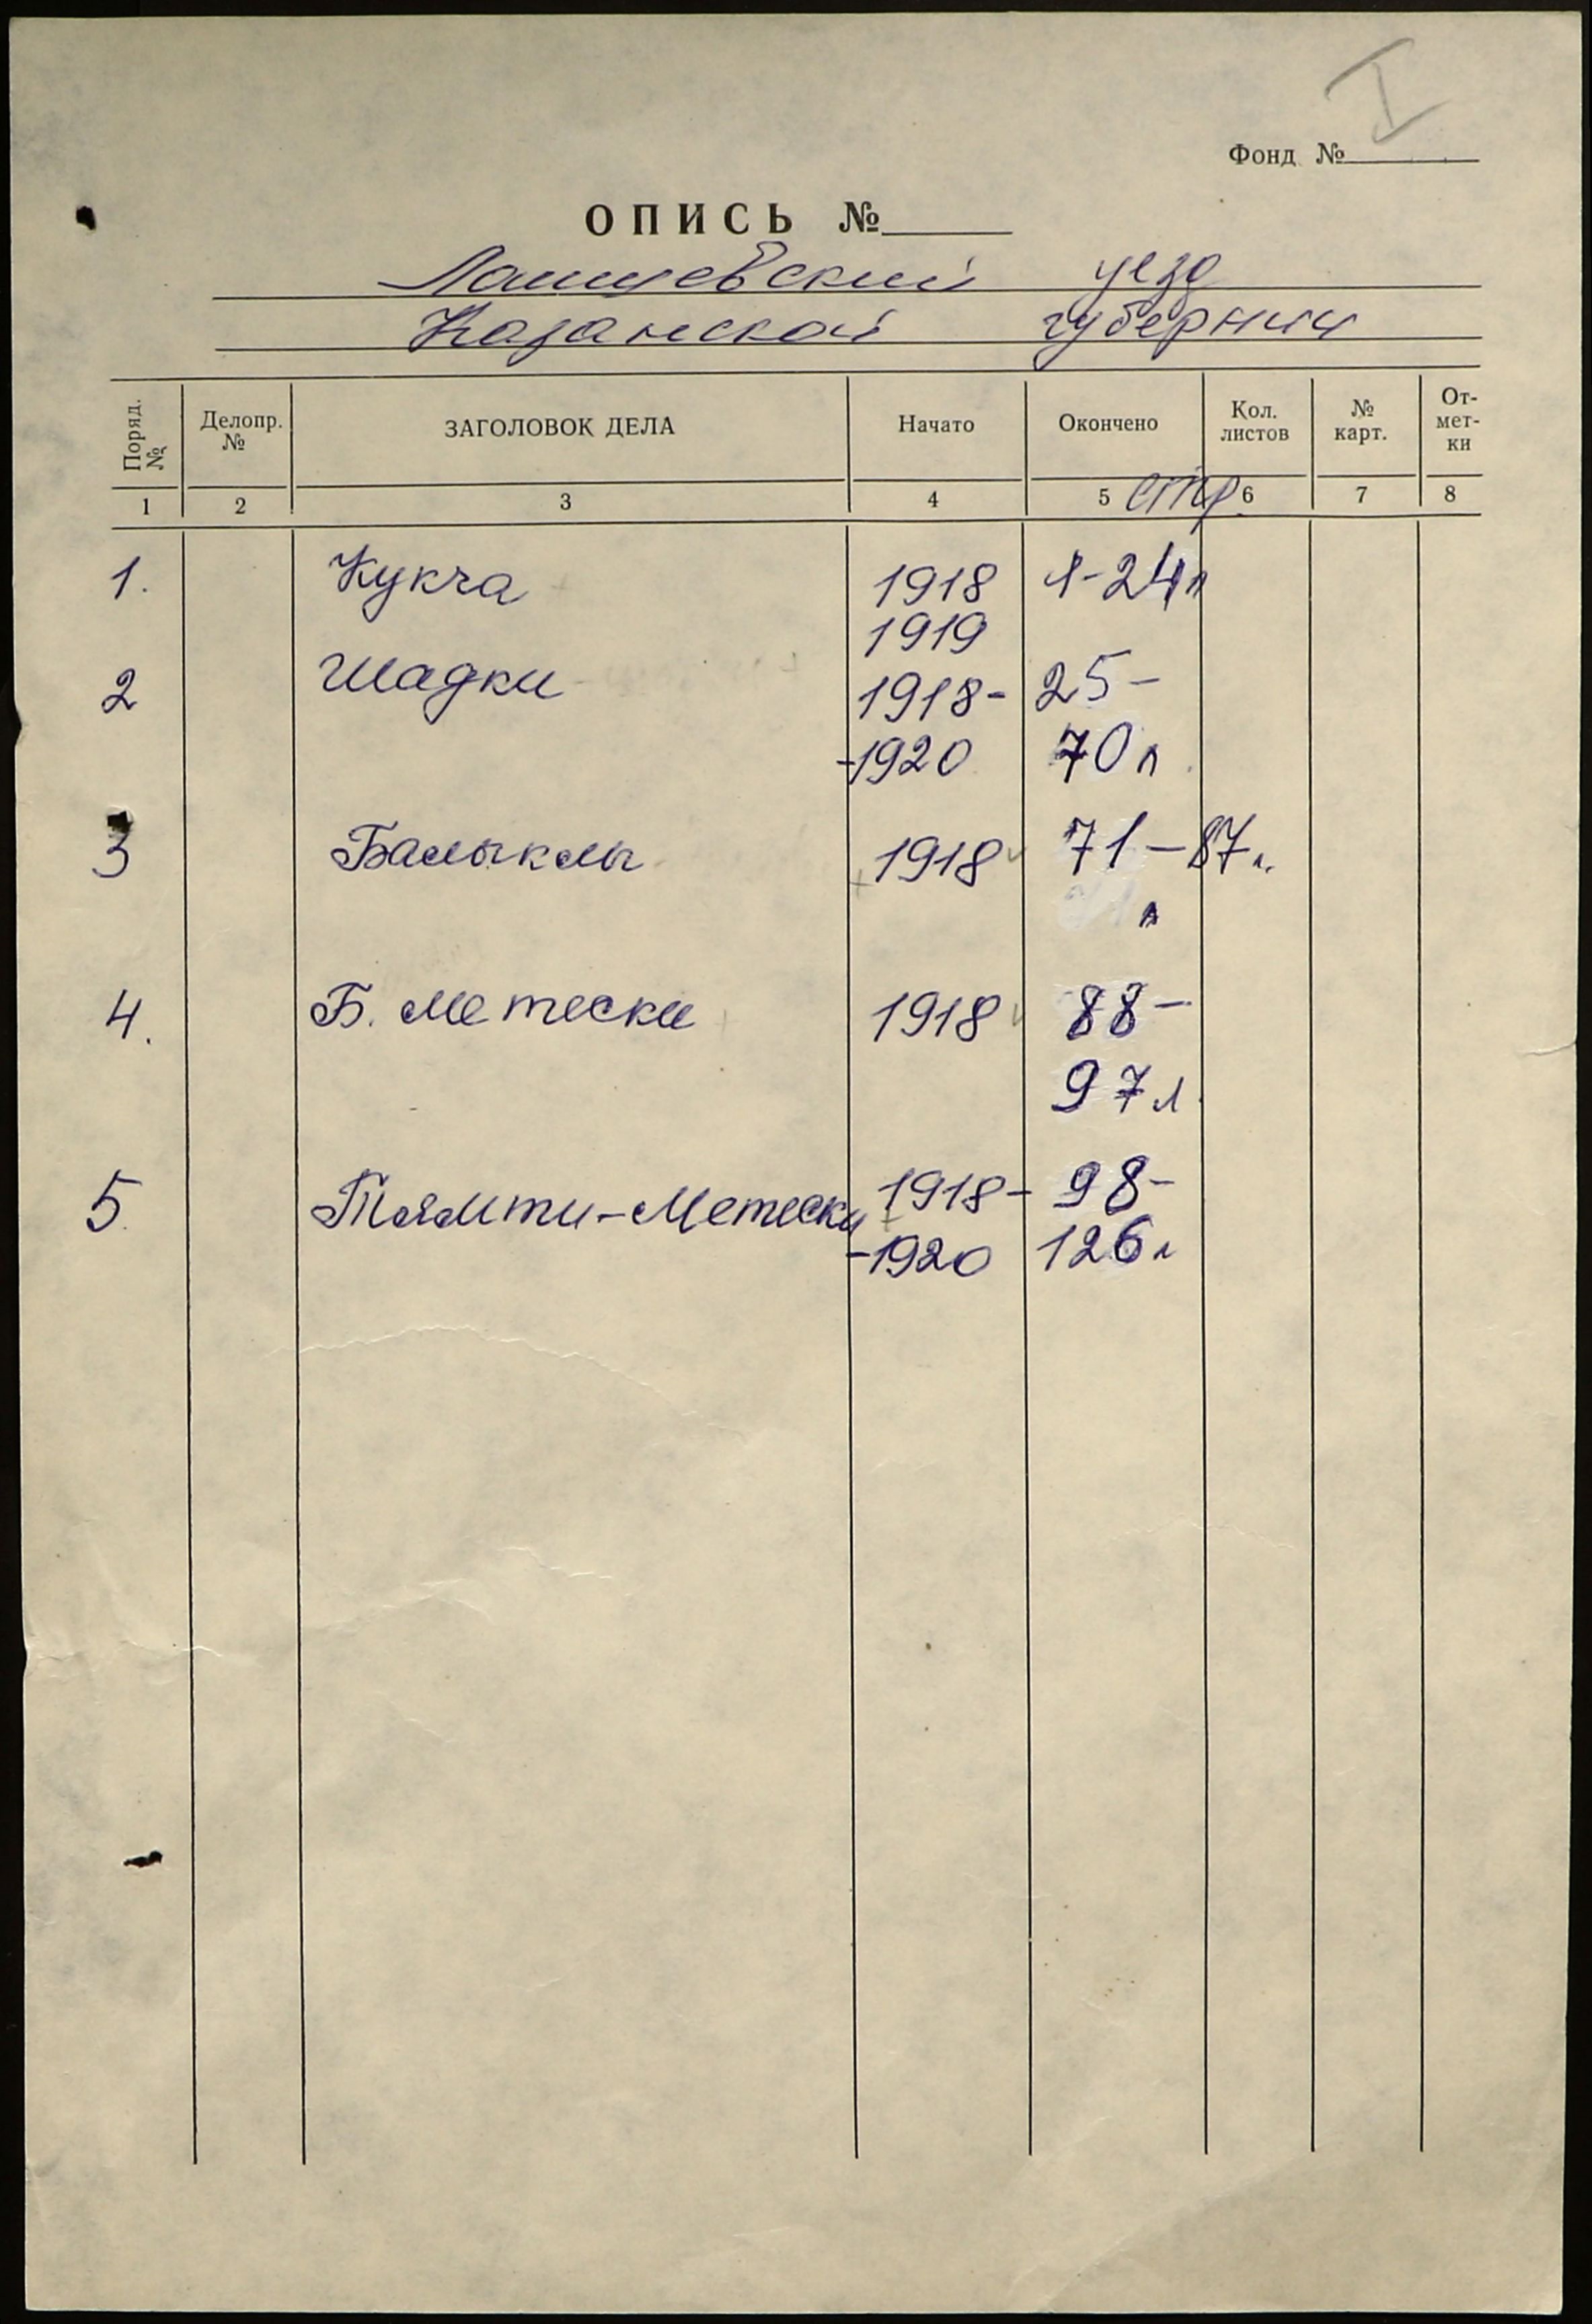 I
Фонд №
ОПИСЬ №
Лаишевский уезд
Казанской губернии
Поряд. №
Делопр. №
ЗАГОЛОВОК ДЕЛА
Начато
Окончено
Кол. листов
№ карт.
От-
мет-
ки
1 2 3 4 5 стр. 6 7 8
1. Кукча 1918 1-24л
1919
2 Шадки 1918- 25-
-1920 70л
3 Балыклы 1918 71-87л.
л
4. Б. Метески 1918 88-
97л
5. Тямти-Метески 1918- 98-
-1920 126л